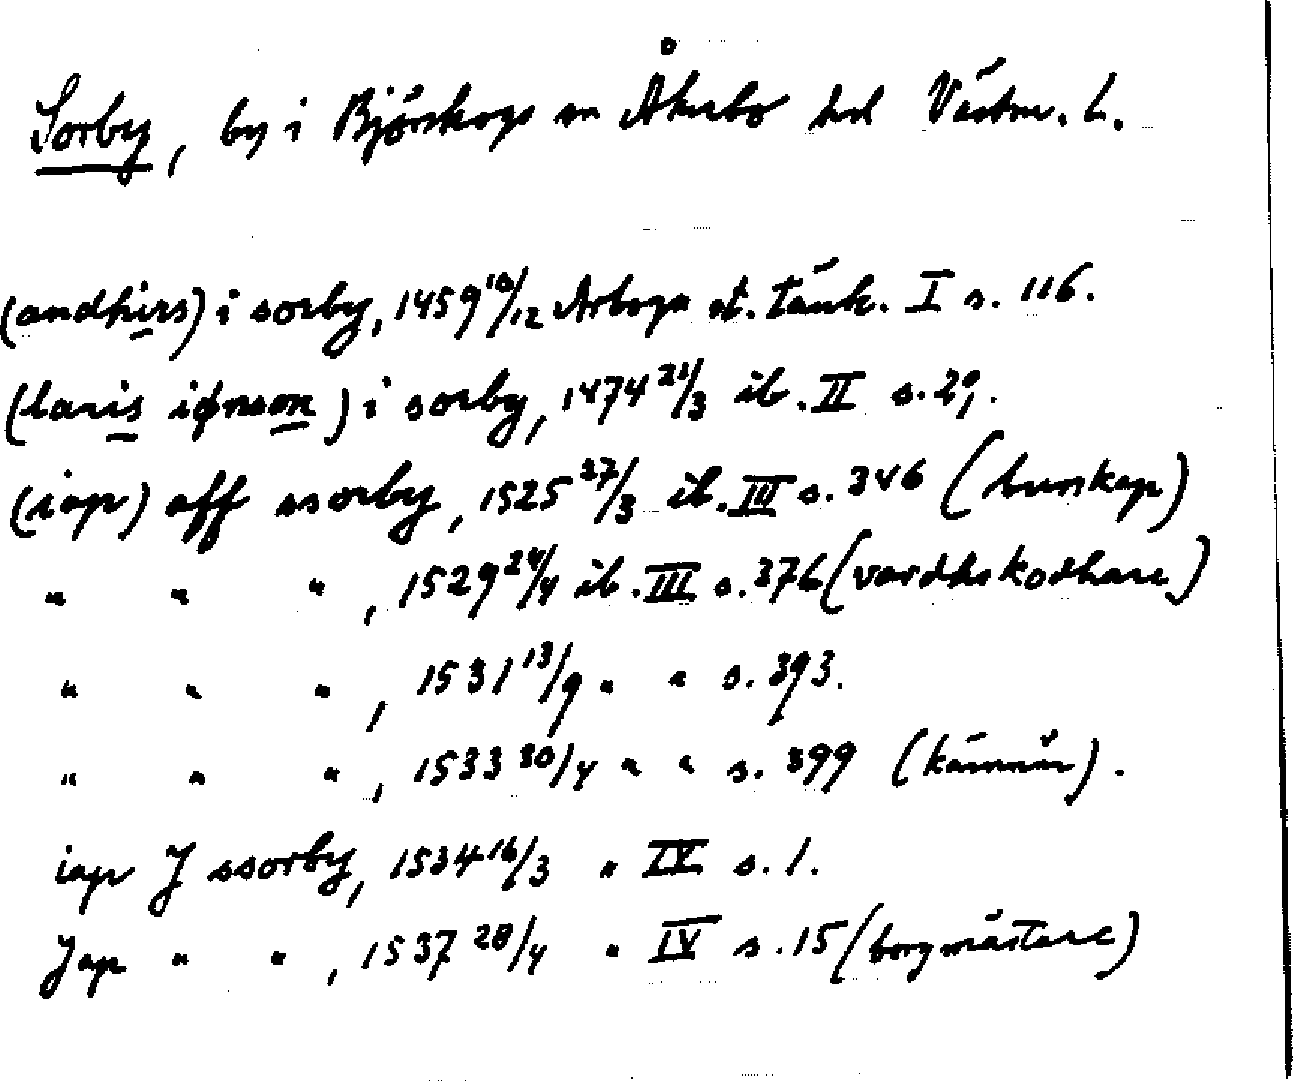 Sorby, by i Björskogs sn Åkerbo hd Västm. L.
(andhirs) i sorby, 1459 10/12 Arboga st. tänk. I s. 116.
(laris iønson) i sorby, 1474 21/3 ib. II s. 29.
(iap) aff ssorby, 1525 27/3 ib. III s. 346 (burskap)
" " " , 1529 24/4 ib. III s. 376 (vardhskodhare)
" " " , 1531 13/9 " " s. 393.
" " " , 1533 30/4 " " s. 399 (kämnär).
iap J ssorby, 1534 16/3 " IV s. 1.
Jap " " , 1537 28/4 " IV s. 15 (borgmästare)